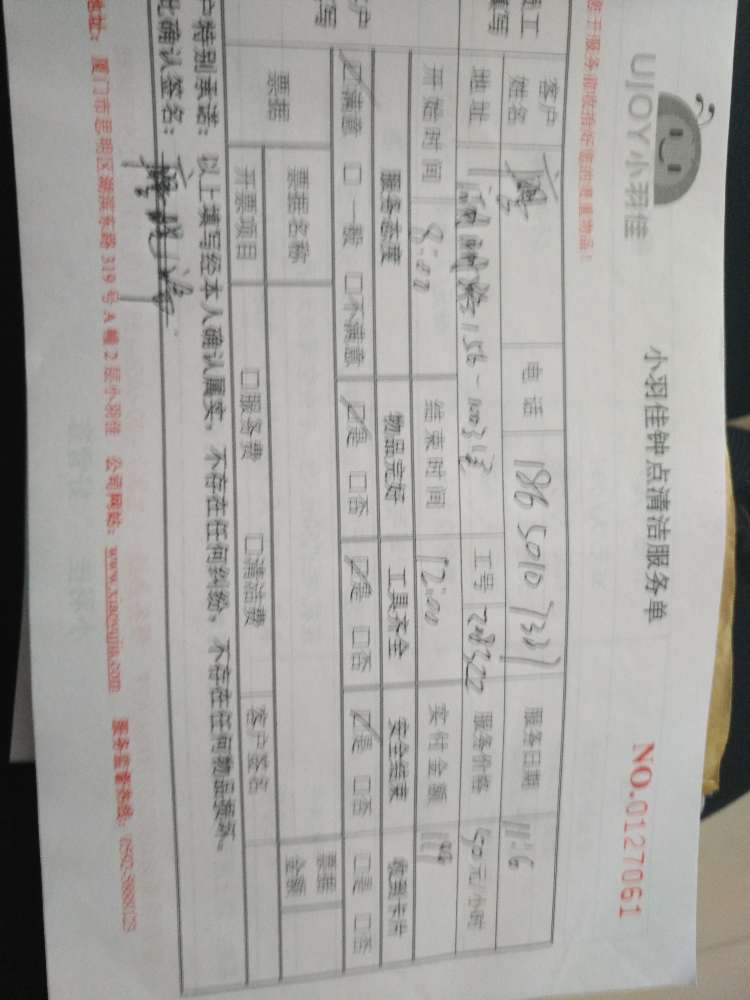 UJOY小羽佳
小羽佳钟点清洁服务单
NO.0127061
客户姓名 电话 186 5010 7337 服务日期 11:6
地址 工号 服务价格 50元/小时
开始时间 8:00 结束时间 12:00 实付金额 199
服务态度 物品完好 工具齐全 安全结束 收到卡片
☑满意 □一般 □不满意 ☑是 □否 ☑是 □否 ☑是 □否 □是 □否
票据 票据名称 票据金额
开票项目 □服务费 □清洁费 客户签名
户特别承诺：以上填写经本人确认属实，不存在任何纠纷，不存在任何物品损坏。
此确认签名：
地址：厦门市思明区湖滨东路319号A幢2层小羽佳 公司网站：www.xiaoyujia.com 服务监督热线：0592-5988812